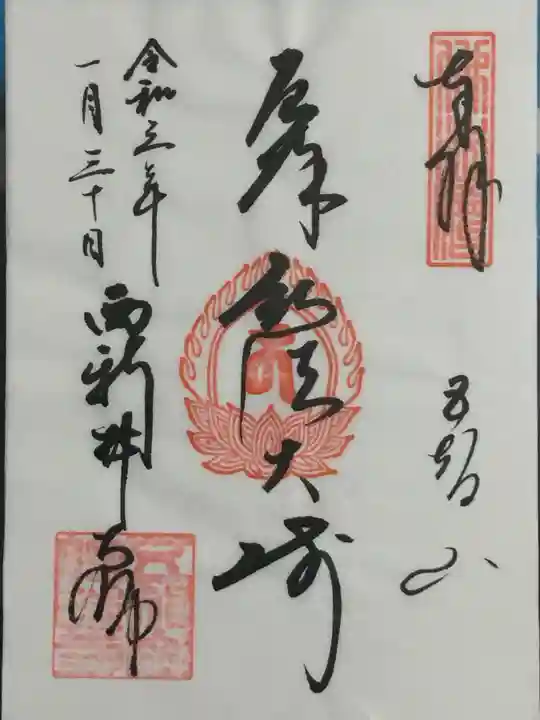 奉拝
五智山
厄除
弘法大師
令和三年
一月三十日
西新井大師